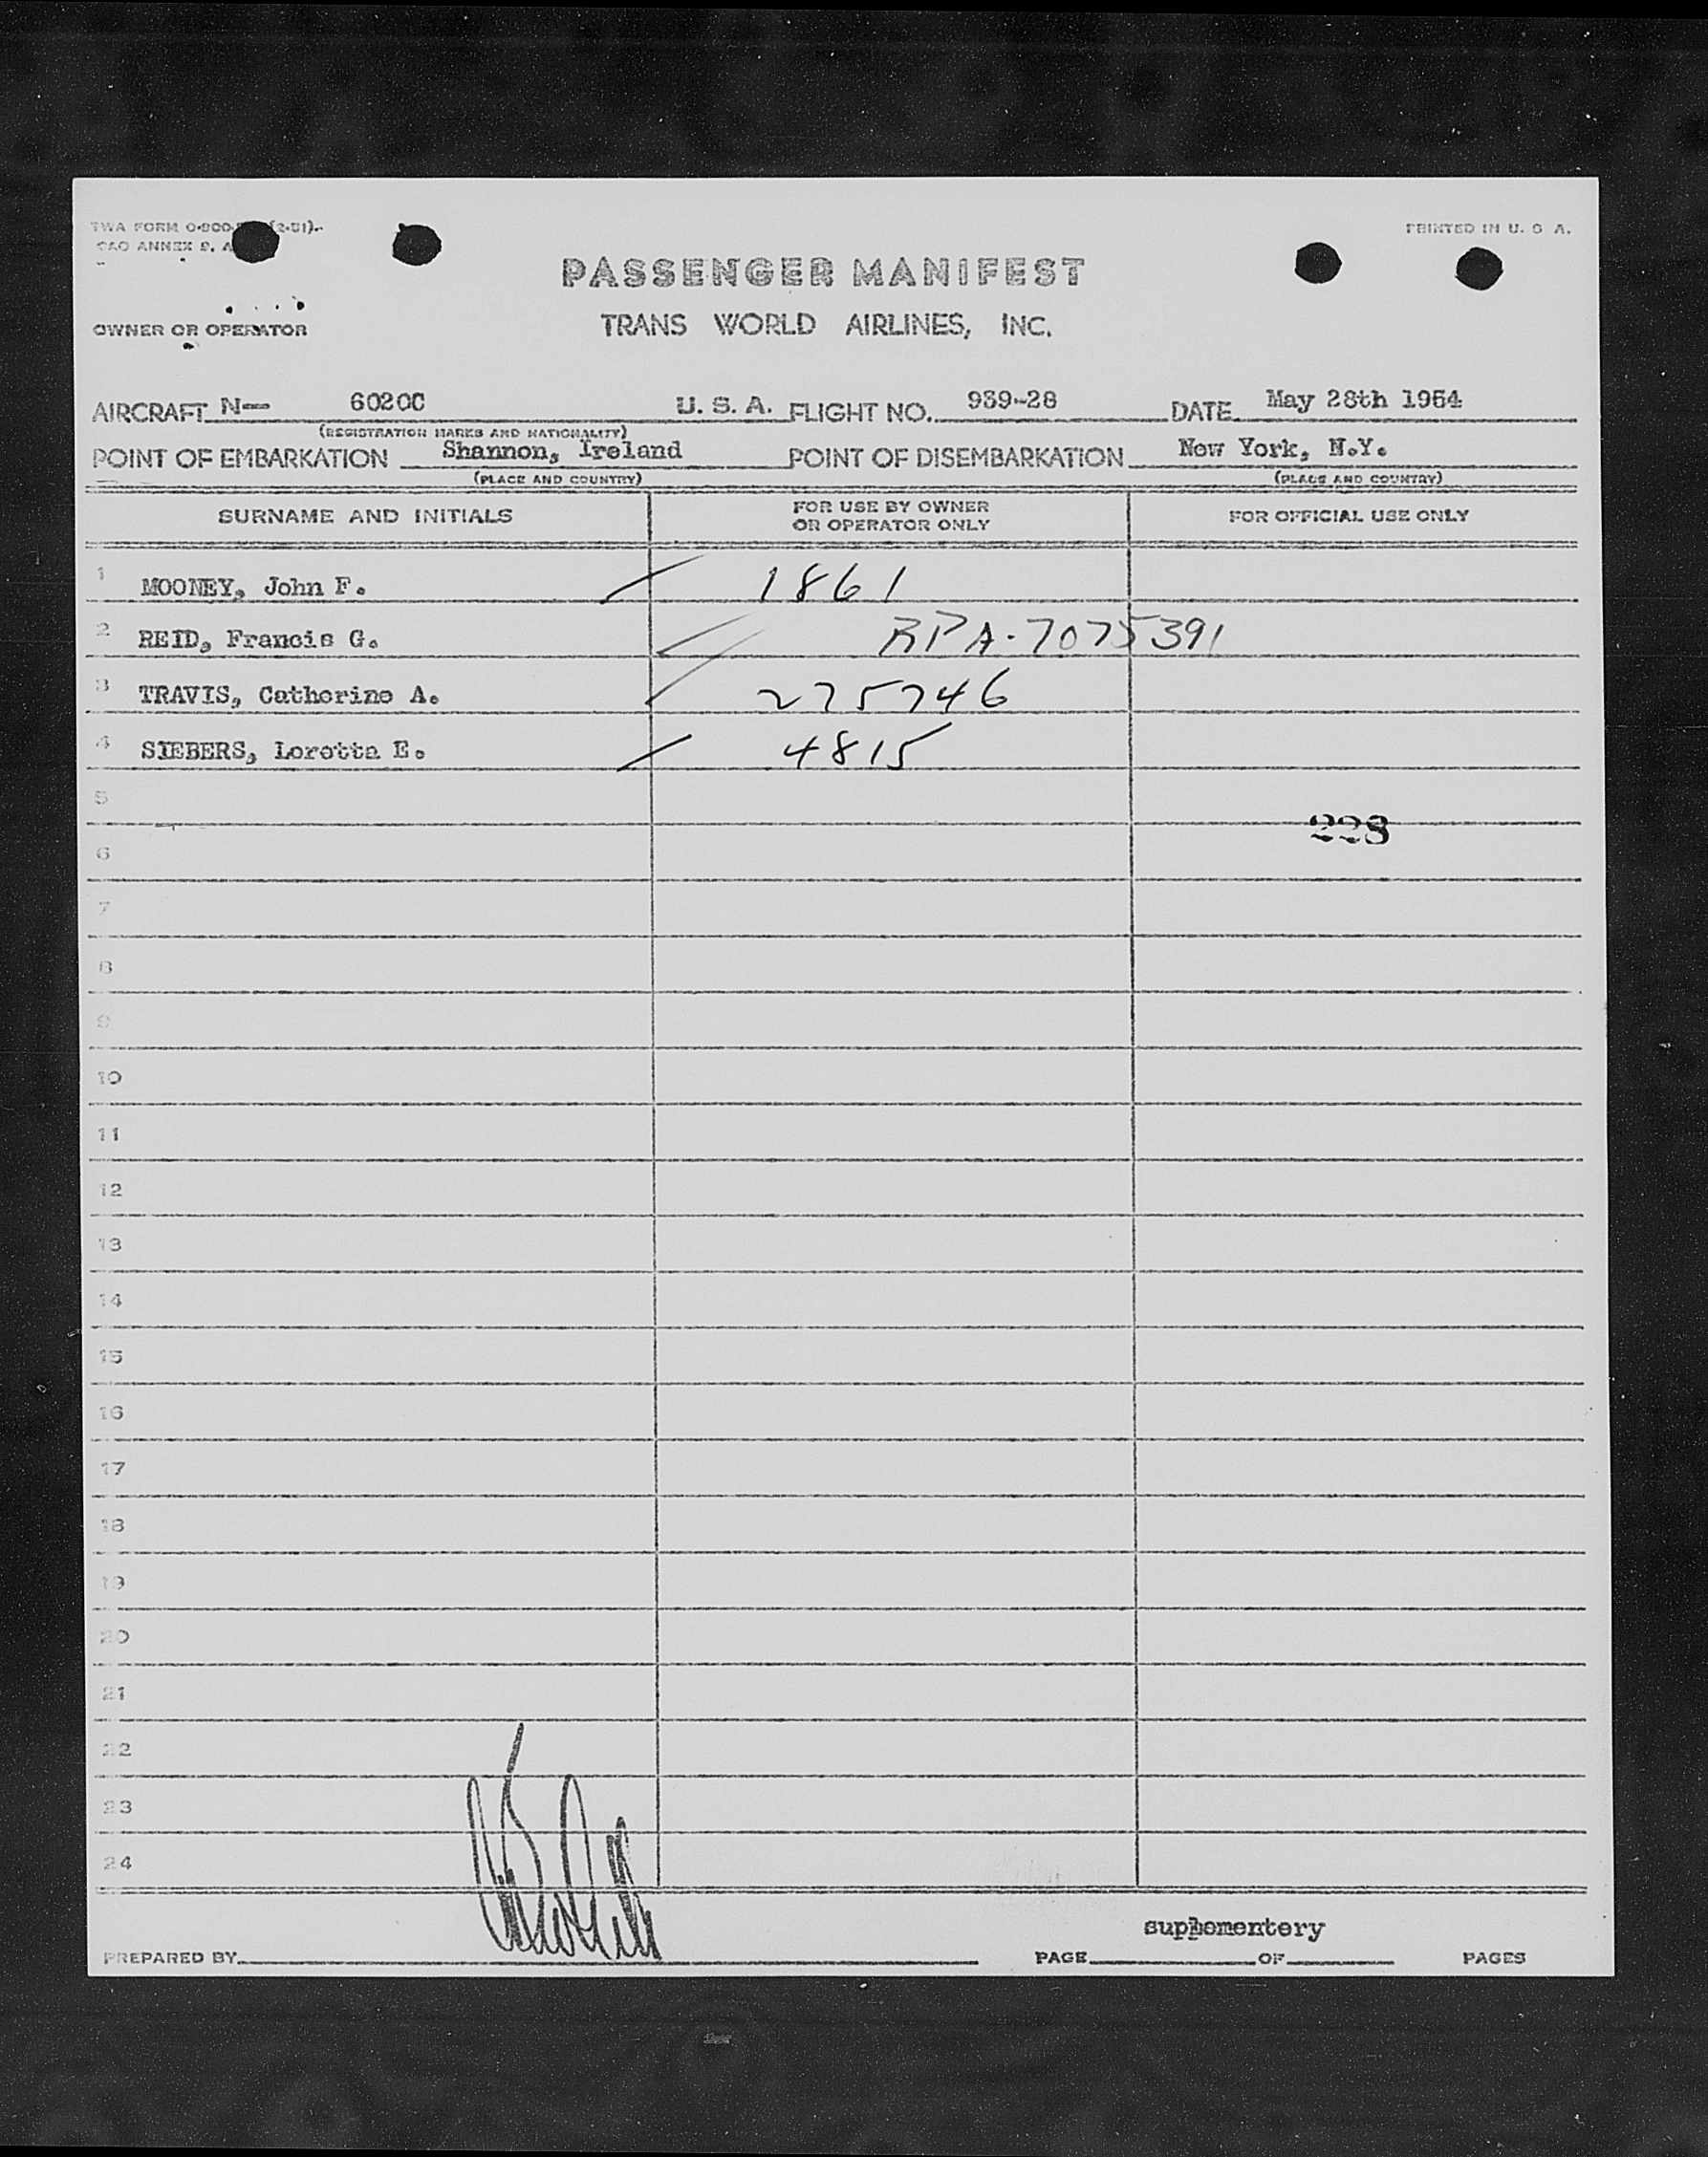 TWA FORM O-800 (2-51)
CAO ANNEX 9, A
PRINTED IN U. S. A.
PASSENGER MANIFEST
OWNER OR OPERATOR TRANS WORLD AIRLINES, INC.
AIRCRAFT N— 6020C U. S. A. FLIGHT NO. 939-28 DATE May 28th 1954
(REGISTRATION MARKS AND NATIONALITY)
POINT OF EMBARKATION Shannon, Ireland POINT OF DISEMBARKATION New York, N.Y.
(PLACE AND COUNTRY) (PLACE AND COUNTRY)
SURNAME AND INITIALS FOR USE BY OWNER OR OPERATOR ONLY FOR OFFICIAL USE ONLY
1 MOONEY, John F. 1861
2 REID, Francis G. RPA-7075391
3 TRAVIS, Catherine A. 275746
4 SIEBERS, Loretta E. 4815
5
228
6
7
8
9
10
11
12
13
14
15
16
17
18
19
20
21
22
23
24
supplementery
PREPARED BY PAGE OF PAGES